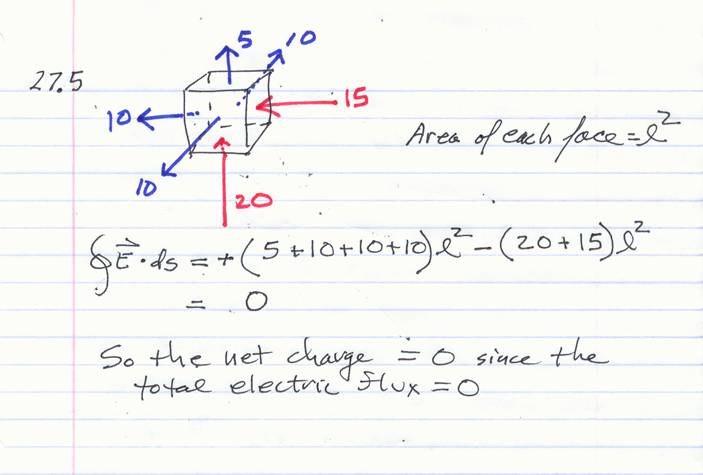 27.5
5
10
10
15
10
20
Area of each face = l²
∮E⃗·ds = +(5+10+10+10)l² - (20+15)l²
= 0
So the net charge = 0 since the
total electric flux = 0